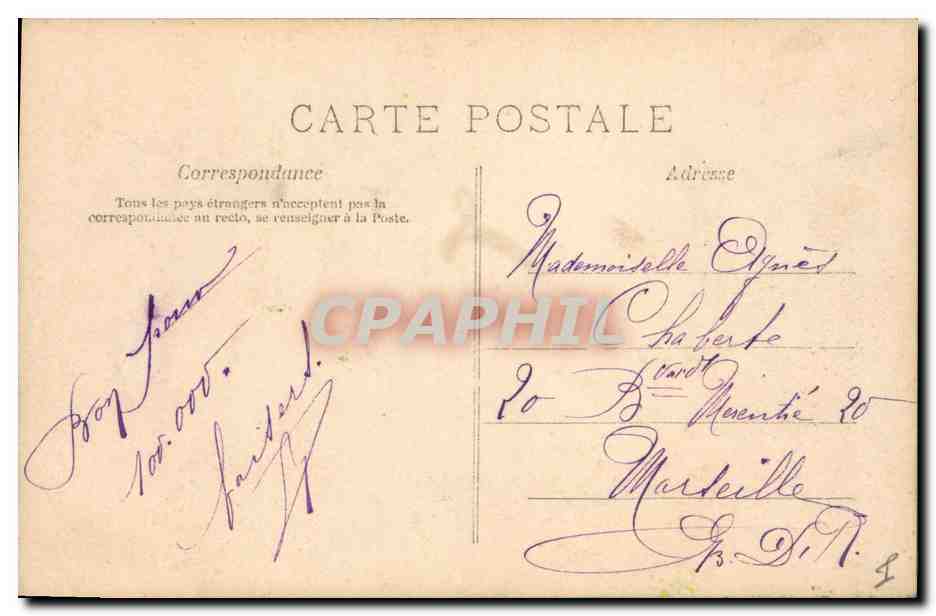 CARTE POSTALE
Correspondance
Tous les pays étrangers n'acceptent pas la
correspondance au recto, se renseigner à la Poste.
Bon pour
100.000.
baisers!
Adresse
Mademoiselle Agnès
Chaberte
20 Bvardt Merentié 20
Marseille
B. D. R.
CPAPHIL